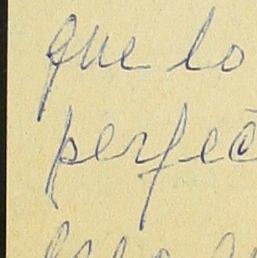 que lo
perfec